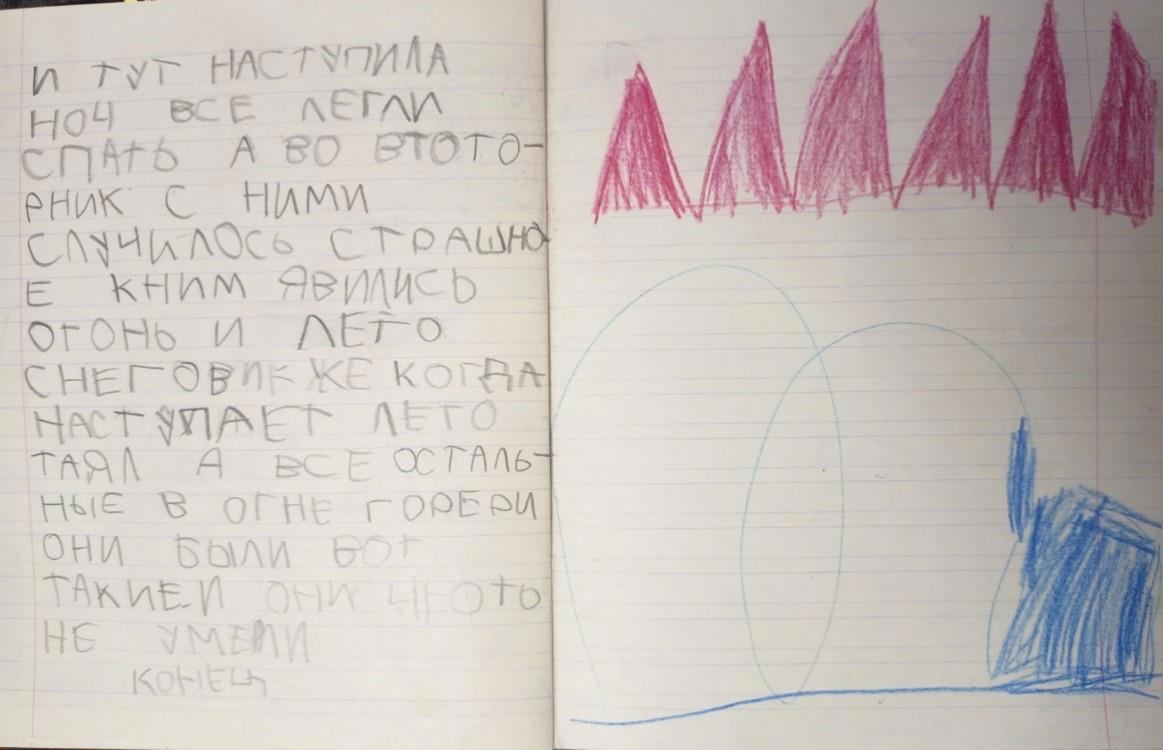 И ТУТ НАСТУПИЛА
НОЧ ВСЕ ЛЕГЛИ
СПАТЬ А ВО ВТОТО-
РНИК С НИМИ
СЛУЧИЛОСЬ СТРАШНО
Е КНИМ ЯВИЛИСЬ
ОГОНЬ И ЛЕТО
СНЕГОВИК ЖЕ КОГДА
НАСТУПАЕТ ЛЕТО
ТАЯЛ А ВСЕ ОСТАЛЬ-
НЫЕ В ОГНЕ ГОРЕРИ
ОНИ БЫЛИ ВОТ
ТАКИЕ И ОНИ ЧТОТО
НЕ УМЕЛИ
КОНЕЦ